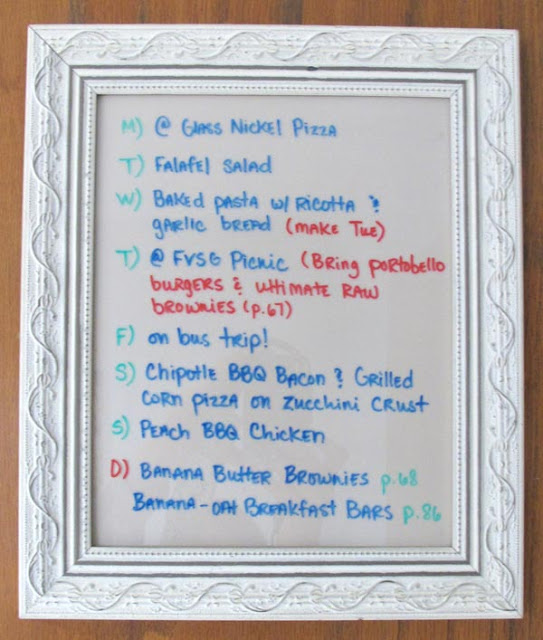 M) @ Glass Nickel Pizza
T) Falafel Salad
W) Baked pasta w/ Ricotta &
garlic bread (make Tue)
T) @ FVSG Picnic (Bring portobello
burgers & ultimate raw
brownies (p.67)
F) on bus trip!
S) Chipotle BBQ Bacon & Grilled
corn pizza on zucchini crust
S) Peach BBQ Chicken
D) Banana Butter Brownies p.68
Banana-oat Breakfast Bars p.86